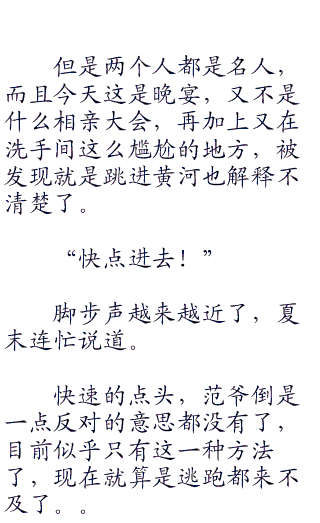 但是两个人都是名人，
而且今天这是晚宴，又不是
什么相亲大会，再加上又在
洗手间这么尴尬的地方，被
发现就是跳进黄河也解释不
清楚了。
“快点进去！”
脚步声越来越近了，夏
末连忙说道。
快速的点头，范爷倒是
一点反对的意思都没有了，
目前似乎只有这一种方法
了，现在就算是逃跑都来不
及了。。